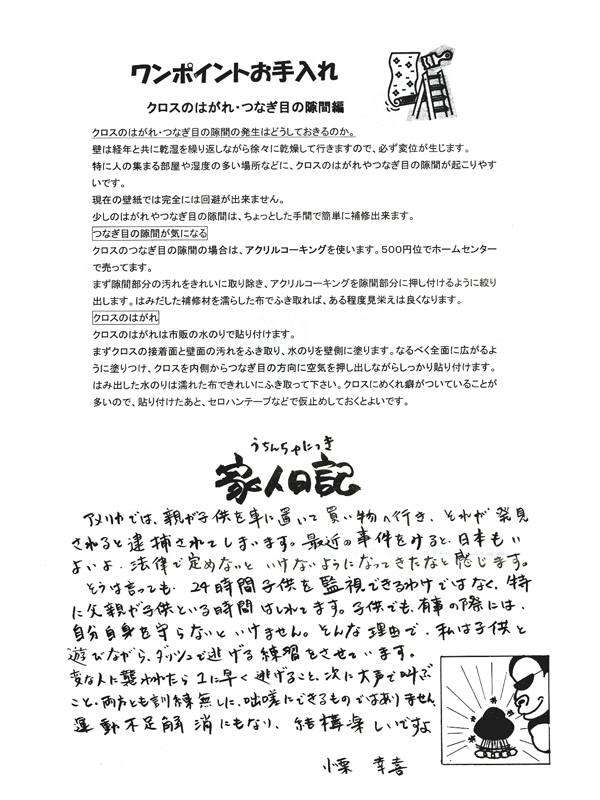 ワンポイントお手入れ
クロスのはがれ・つなぎ目の隙間編
クロスのはがれ・つなぎ目の隙間の発生はどうしておきるのか。
壁は経年と共に乾湿を繰り返しながら徐々に乾燥して行きますので、必ず変位が生じます。
特に人の集まる部屋や湿度の多い場所などに、クロスのはがれやつなぎ目の隙間が起こりやす
いです。
現在の壁紙では完全には回避が出来ません。
少しのはがれやつなぎ目の隙間は、ちょっとした手間で簡単に補修出来ます。
つなぎ目の隙間が気になる
クロスのつなぎ目の隙間の場合は、アクリルコーキングを使います。500円位でホームセンター
で売ってます。
まず隙間部分の汚れをきれいに取り除き、アクリルコーキングを隙間部分に押し付けるように絞り
出します。はみだした補修材を濡らした布でふき取れば、ある程度見栄えは良くなります。
クロスのはがれ
クロスのはがれは市販の水のりで貼り付けます。
まずクロスの接着面と壁面の汚れをふき取り、水のりを壁側に塗ります。なるべく全面に広がるよ
うに塗りつけ、クロスを内側からつなぎ目の方向に空気を押し出しながらしっかり貼り付けます。
はみ出した水のりは濡れた布できれいにふき取って下さい。クロスにめくれ癖がついていることが
多いので、貼り付けたあと、セロハンテープなどで仮止めしておくとよいです。
うちんちゃにっき
家人日記
アメリカでは、親が子供を車に置いて買い物へ行き、それが発見
されると逮捕されてしまいます。最近の事件をみると、日本もい
よいよ、法律で定めないといけないようになってきたなと感じます。
そうは言っても、24時間子供を監視できるわけではなく、特
に父親が子供といる時間はしれてます。子供でも、有事の際には、
自分自身を守らないといけません。そんな理由で、私は子供と
遊びながら、ダッシュで逃げる練習をさせています。
変な人に襲われたら1に早く逃げること、次に大声で叫ぶ
こと、両方とも訓練無しに、咄嗟にできるものではありません。
運動不足解消にもなり、結構楽しいですよ
小栗 幸喜